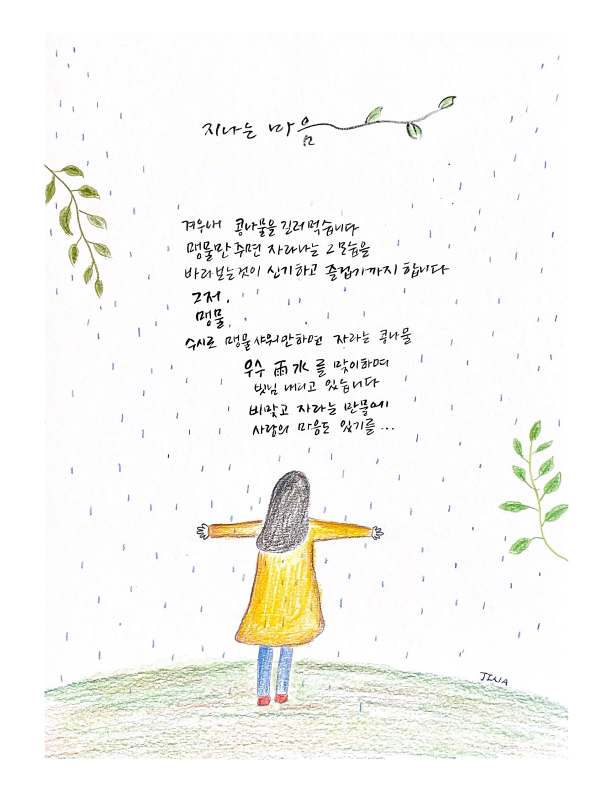 지나는 마음
겨우내 콩나물을 길러먹습니다
맹물만 주면 자라나는 그 모습을
바라보는것이 신기하고 즐겁기까지 합니다
그저,
맹물,
수시로 맹물 샤워만하면 자라는 콩나물
우수 雨水 를 맞이하며
빗님 내리고 있습니다
비맞고 자라는 만물에
사랑의 마음도 있기를...
JINA